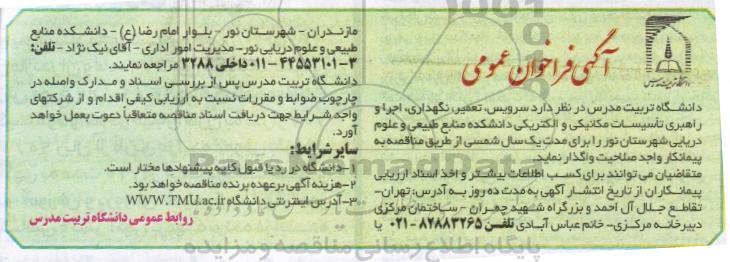 آگهی فراخوان عمومی
دانشگاه تربیت مدرس
دانشگاه تربیت مدرس در نظر دارد سرویس، تعمیر، نگهداری، اجرا و
راهبری تأسیسات مکانیکی و الکتریکی دانشکده منابع طبیعی و علوم
دریایی شهرستان نور را برای مدت یک سال شمسی از طریق مناقصه به
پیمانکار واجد صلاحیت واگذار نماید.
متقاضیان می توانند برای کسب اطلاعات بیشتر و اخذ اسناد ارزیابی
پیمانکاران از تاریخ انتشار آگهی به مدت ده روز به آدرس: تهران-
تقاطع جلال آل احمد و بزرگراه شهید چمران - ساختمان مرکزی
دبیرخانه مرکزی- خانم عباس آبادی تلفن ۸۲۸۸۳۲۶۵-۰۲۱ یا
مازندران - شهرستان نور - بلوار امام رضا (ع) - دانشکده منابع
طبیعی و علوم دریایی نور- مدیریت امور اداری - آقای نیک نژاد - تلفن:
۳-۴۴۵۵۳۱۰۱-۰۱۱ داخلی ۳۲۸۸ مراجعه نمایند.
دانشگاه تربیت مدرس پس از بررسی اسناد و مدارک واصله در
چارچوب ضوابط و مقررات نسبت به ارزیابی کیفی اقدام و از شرکتهای
واجد شرایط جهت دریافت اسناد مناقصه متعاقباً دعوت بعمل خواهد
آورد.
سایر شرایط:
۱-دانشگاه در رد یا قبول کلیه پیشنهادها مختار است.
۲-هزینه آگهی برعهده برنده مناقصه خواهد بود.
۳-آدرس اینترنتی دانشگاه WWW.TMU.ac.ir
روابط عمومی دانشگاه تربیت مدرس
ParsNamadData
پایگاه اطلاع رسانی مناقصه و مزایده